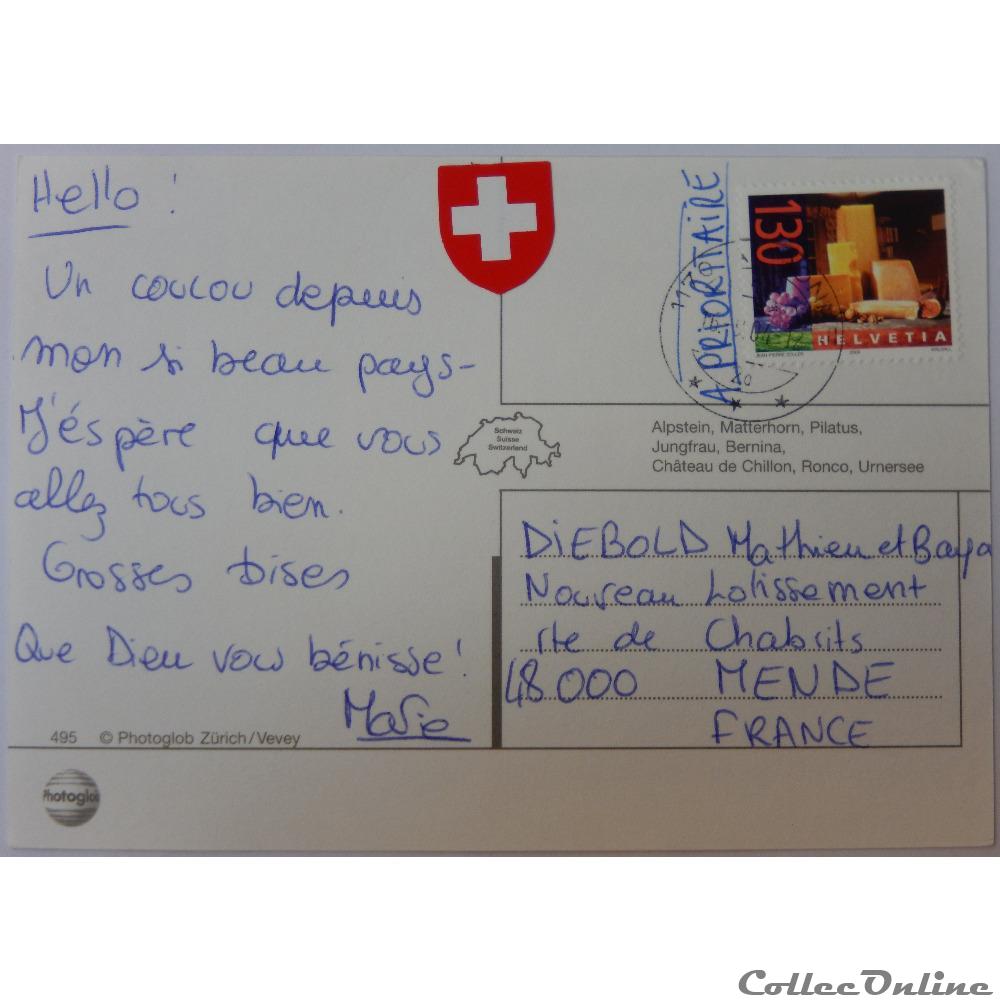 Hello !
Un coucou depuis
mon si beau pays-
J'éspère que vous
allez tous bien.
Grosses bises
Que Dieu vous bénisse !
Marie
495 © Photoglob Zürich/Vevey
Photoglob
A PRIORITAIRE
130
HELVETIA
JEAN-PIERRE ZOLLER
Schweiz
Suisse
Switzerland
Alpstein, Matterhorn, Pilatus,
Jungfrau, Bernina,
Château de Chillon, Ronco, Urnersee
DIEBOLD Mathieu et Baya
Nouveau Lotissement
rte de Chabrits
48000 MENDE
FRANCE
CollecOnline